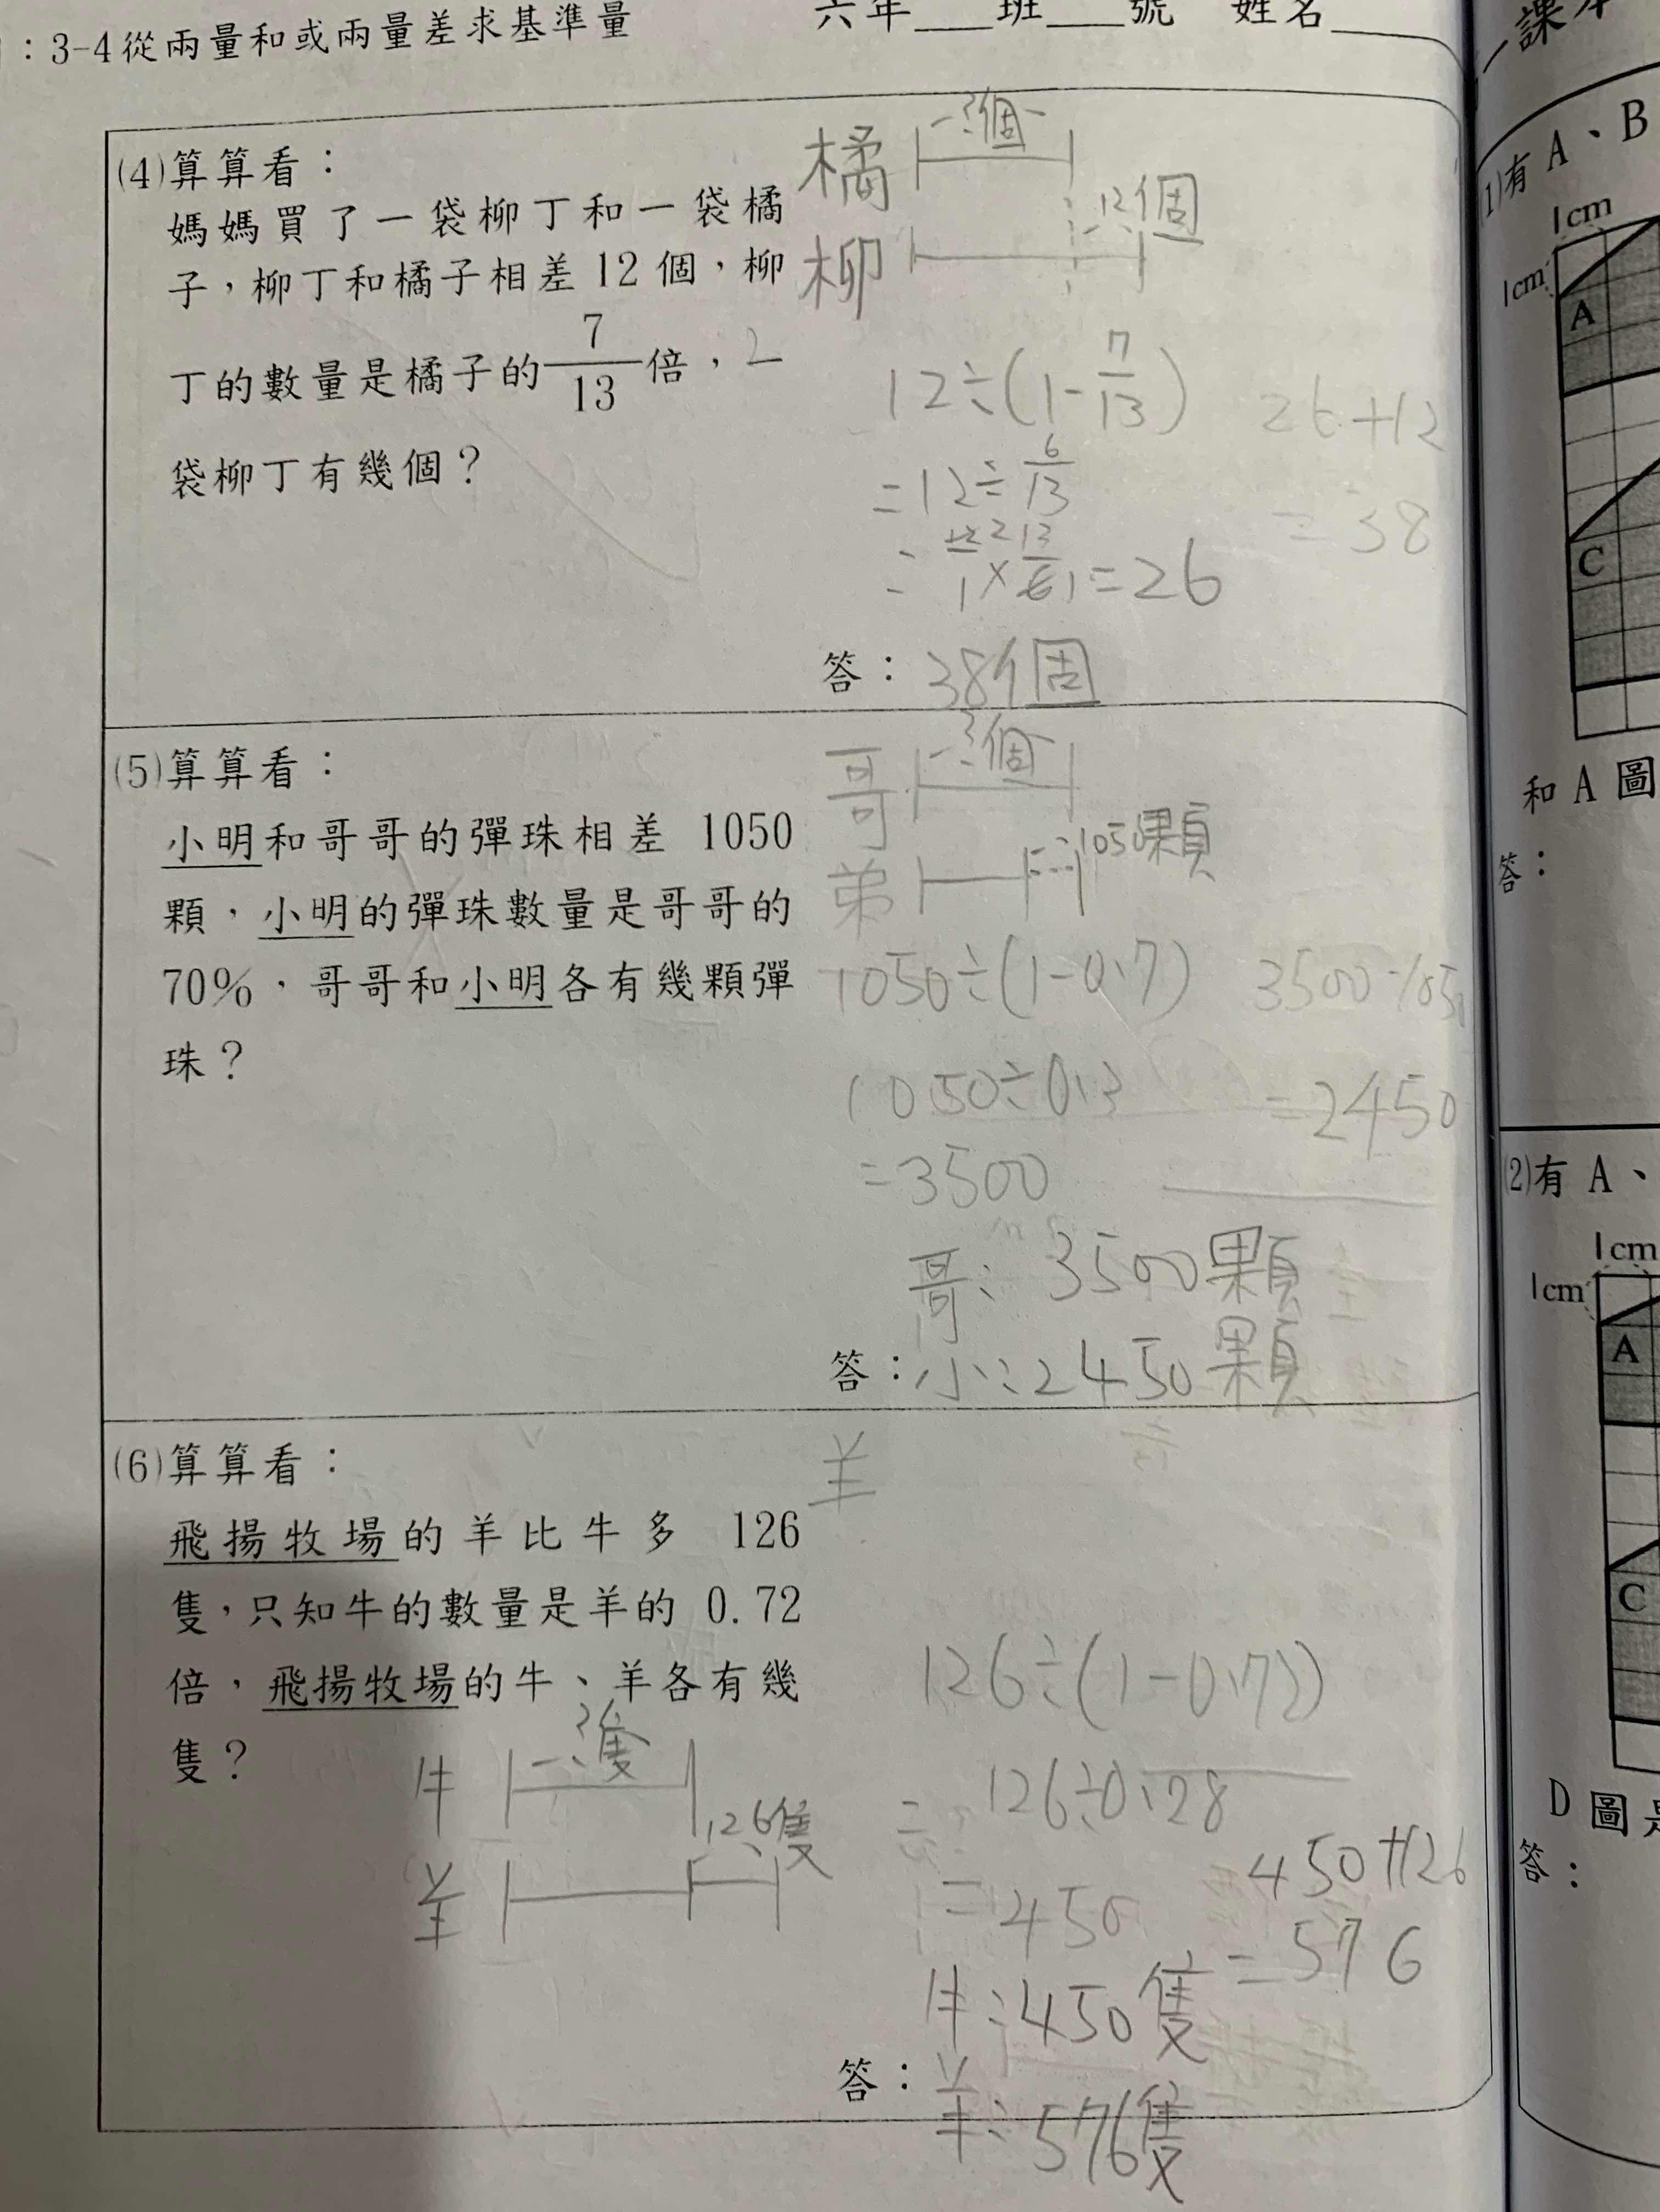 ：3-4從兩量和或兩量差求基準量
六年___班___號 姓名
(4)算算看：
媽媽買了一袋柳丁和一袋橘
子，柳丁和橘子相差 12 個，柳
丁的數量是橘子的7/13倍，一
袋柳丁有幾個？
橘 ?個
12個
柳
12÷(1-7/13)
=12÷6/13
=12 2/1×13/6 1=26
26+12
=38
答：38個
(5)算算看：
小明和哥哥的彈珠相差 1050
顆，小明的彈珠數量是哥哥的
70%，哥哥和小明各有幾顆彈
珠？
哥 ?個
弟 1050顆
1050÷(1-0.7)
1050÷0.3
=3500
3500-1050
=2450
哥：3500顆
答：小：2450顆
(6)算算看：
飛揚牧場的羊比牛多 126
隻，只知牛的數量是羊的 0.72
倍，飛揚牧場的牛、羊各有幾
隻？
羊
牛 ?隻
126隻
羊
126÷(1-0.72)
=126÷0.28
=450
450+126
=576
牛：450隻
答：羊：576隻
課本
1)有 A、B
1cm
1cm
A
C
和 A 圖
答：
(2)有 A、
1cm
1cm
A
C
D 圖是
答：